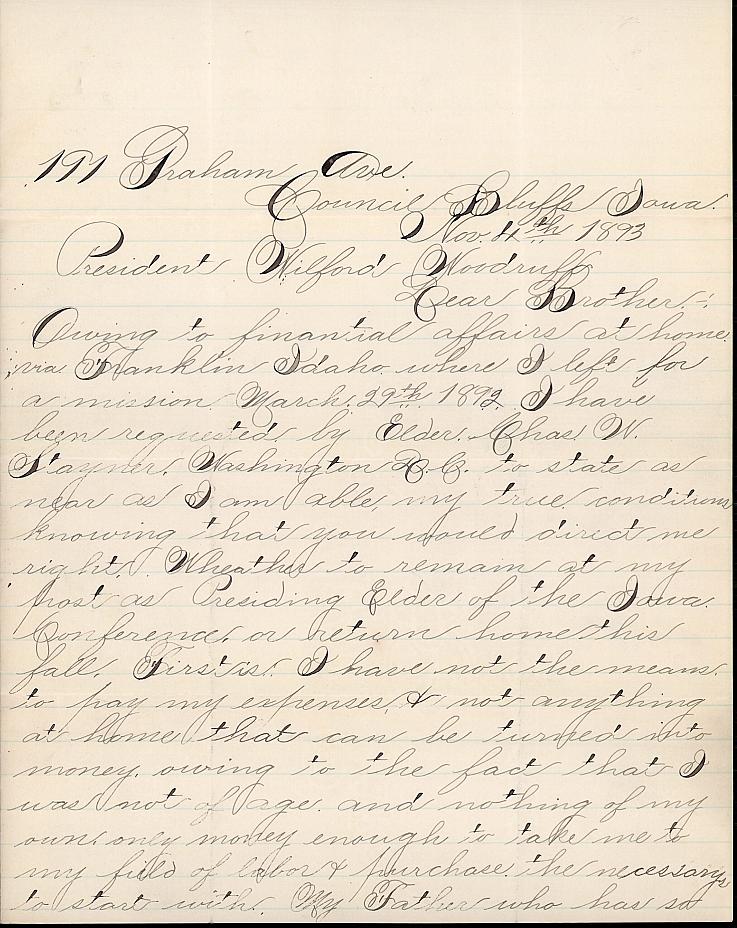 191 Graham Ave.
Council Bluffs Iowa.
Nov. 4th 1893
President Wilford Woodruff
Dear Brother:—
Owing to financial affairs at home.
via Franklin Idaho. where I left for
a mission. March. 29th 1892. I have
been requested. by Elder. Chas. W.
Stayner. Washington D.C. to state as
near as I am able, my true. conditions
knowing that you would direct me
right. Wheather to remain at my
post as Presiding Elder of the Iowa.
Conference. or return home this
fall. First is. I have not the means.
to pay my expenses, & not anything
at home that can be turned into
money. owing to the fact that I
was not of age. and nothing of my
own. only money enough to take me to
my field of labor & purchase. the necessarys
to start with. My Father who has so